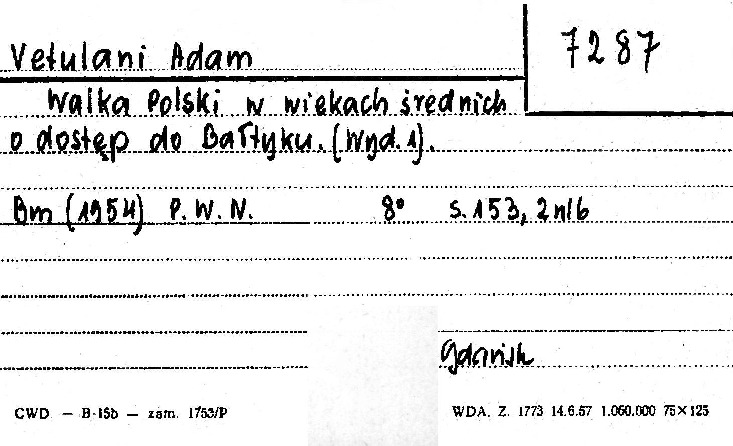 7287
Vetulani Adam
Walka Polski w wiekach średnich
o dostęp do Bałtyku. (Wyd. 1).
Bm (1954) P. W. N. 8° s. 153, 2 nlb
Gdańsk
CWD — B-15b — zam. 1753/P
WDA. Z. 1773 14.6.57 1.060.000 75×125